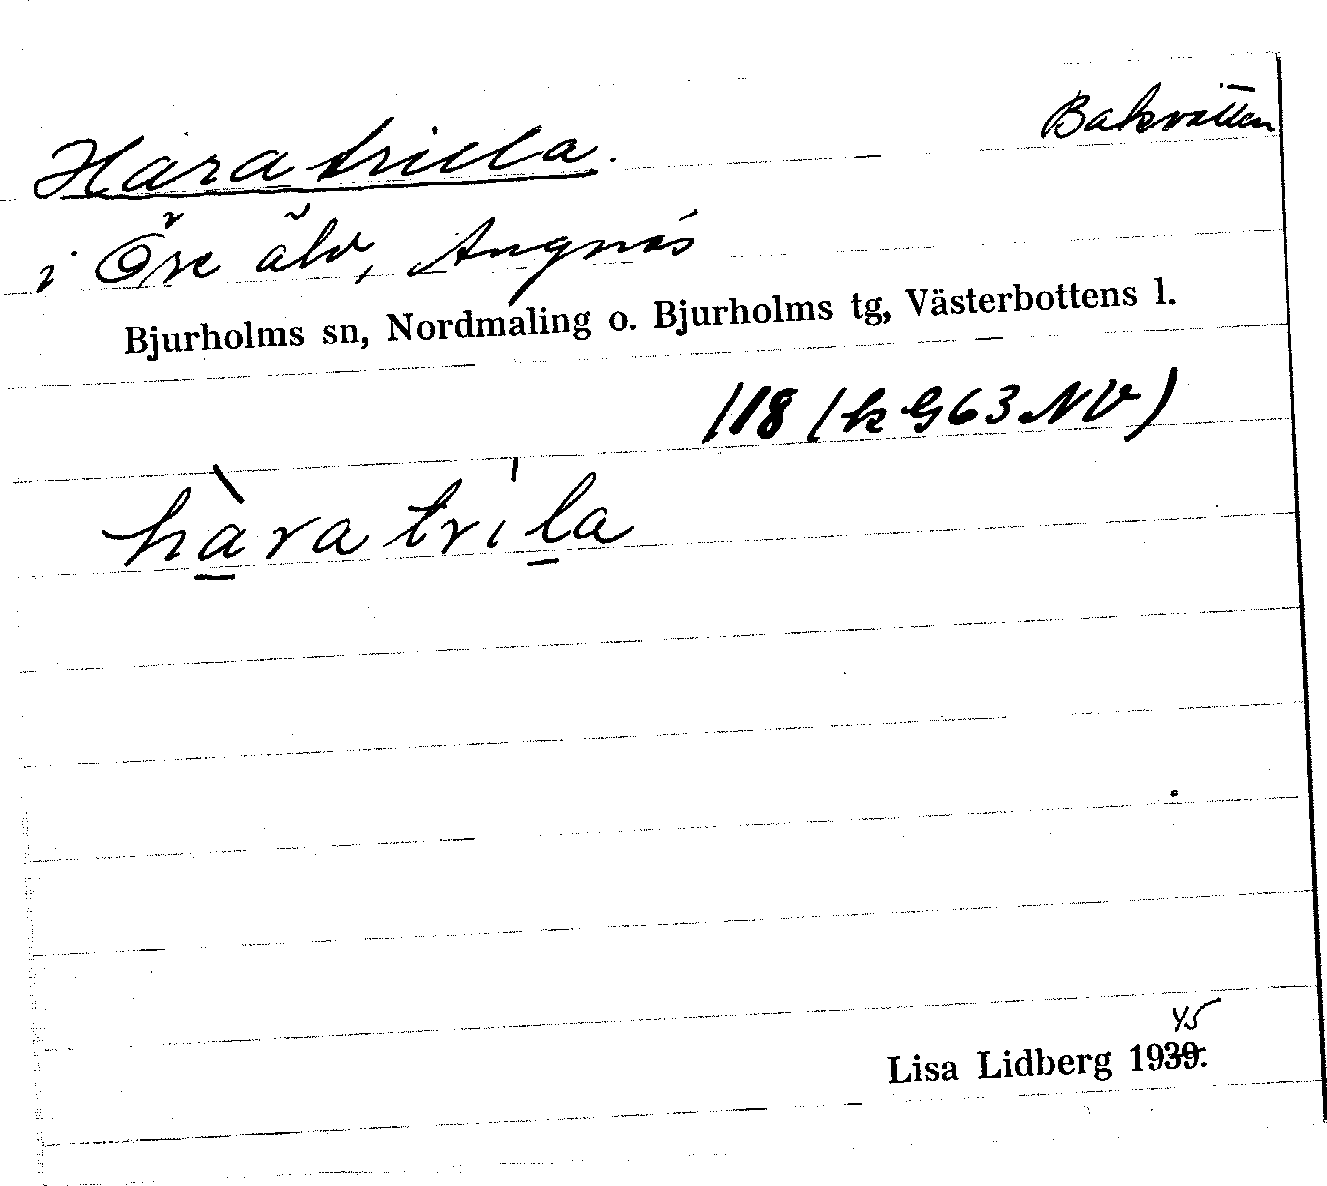 Haratrilla. Bakvatten
i Öre älv, Angnäs
Bjurholms sn, Nordmaling o. Bjurholms tg, Västerbottens l.
118 (k G63 NV)
hàratri̍la
45
Lisa Lidberg 1939.